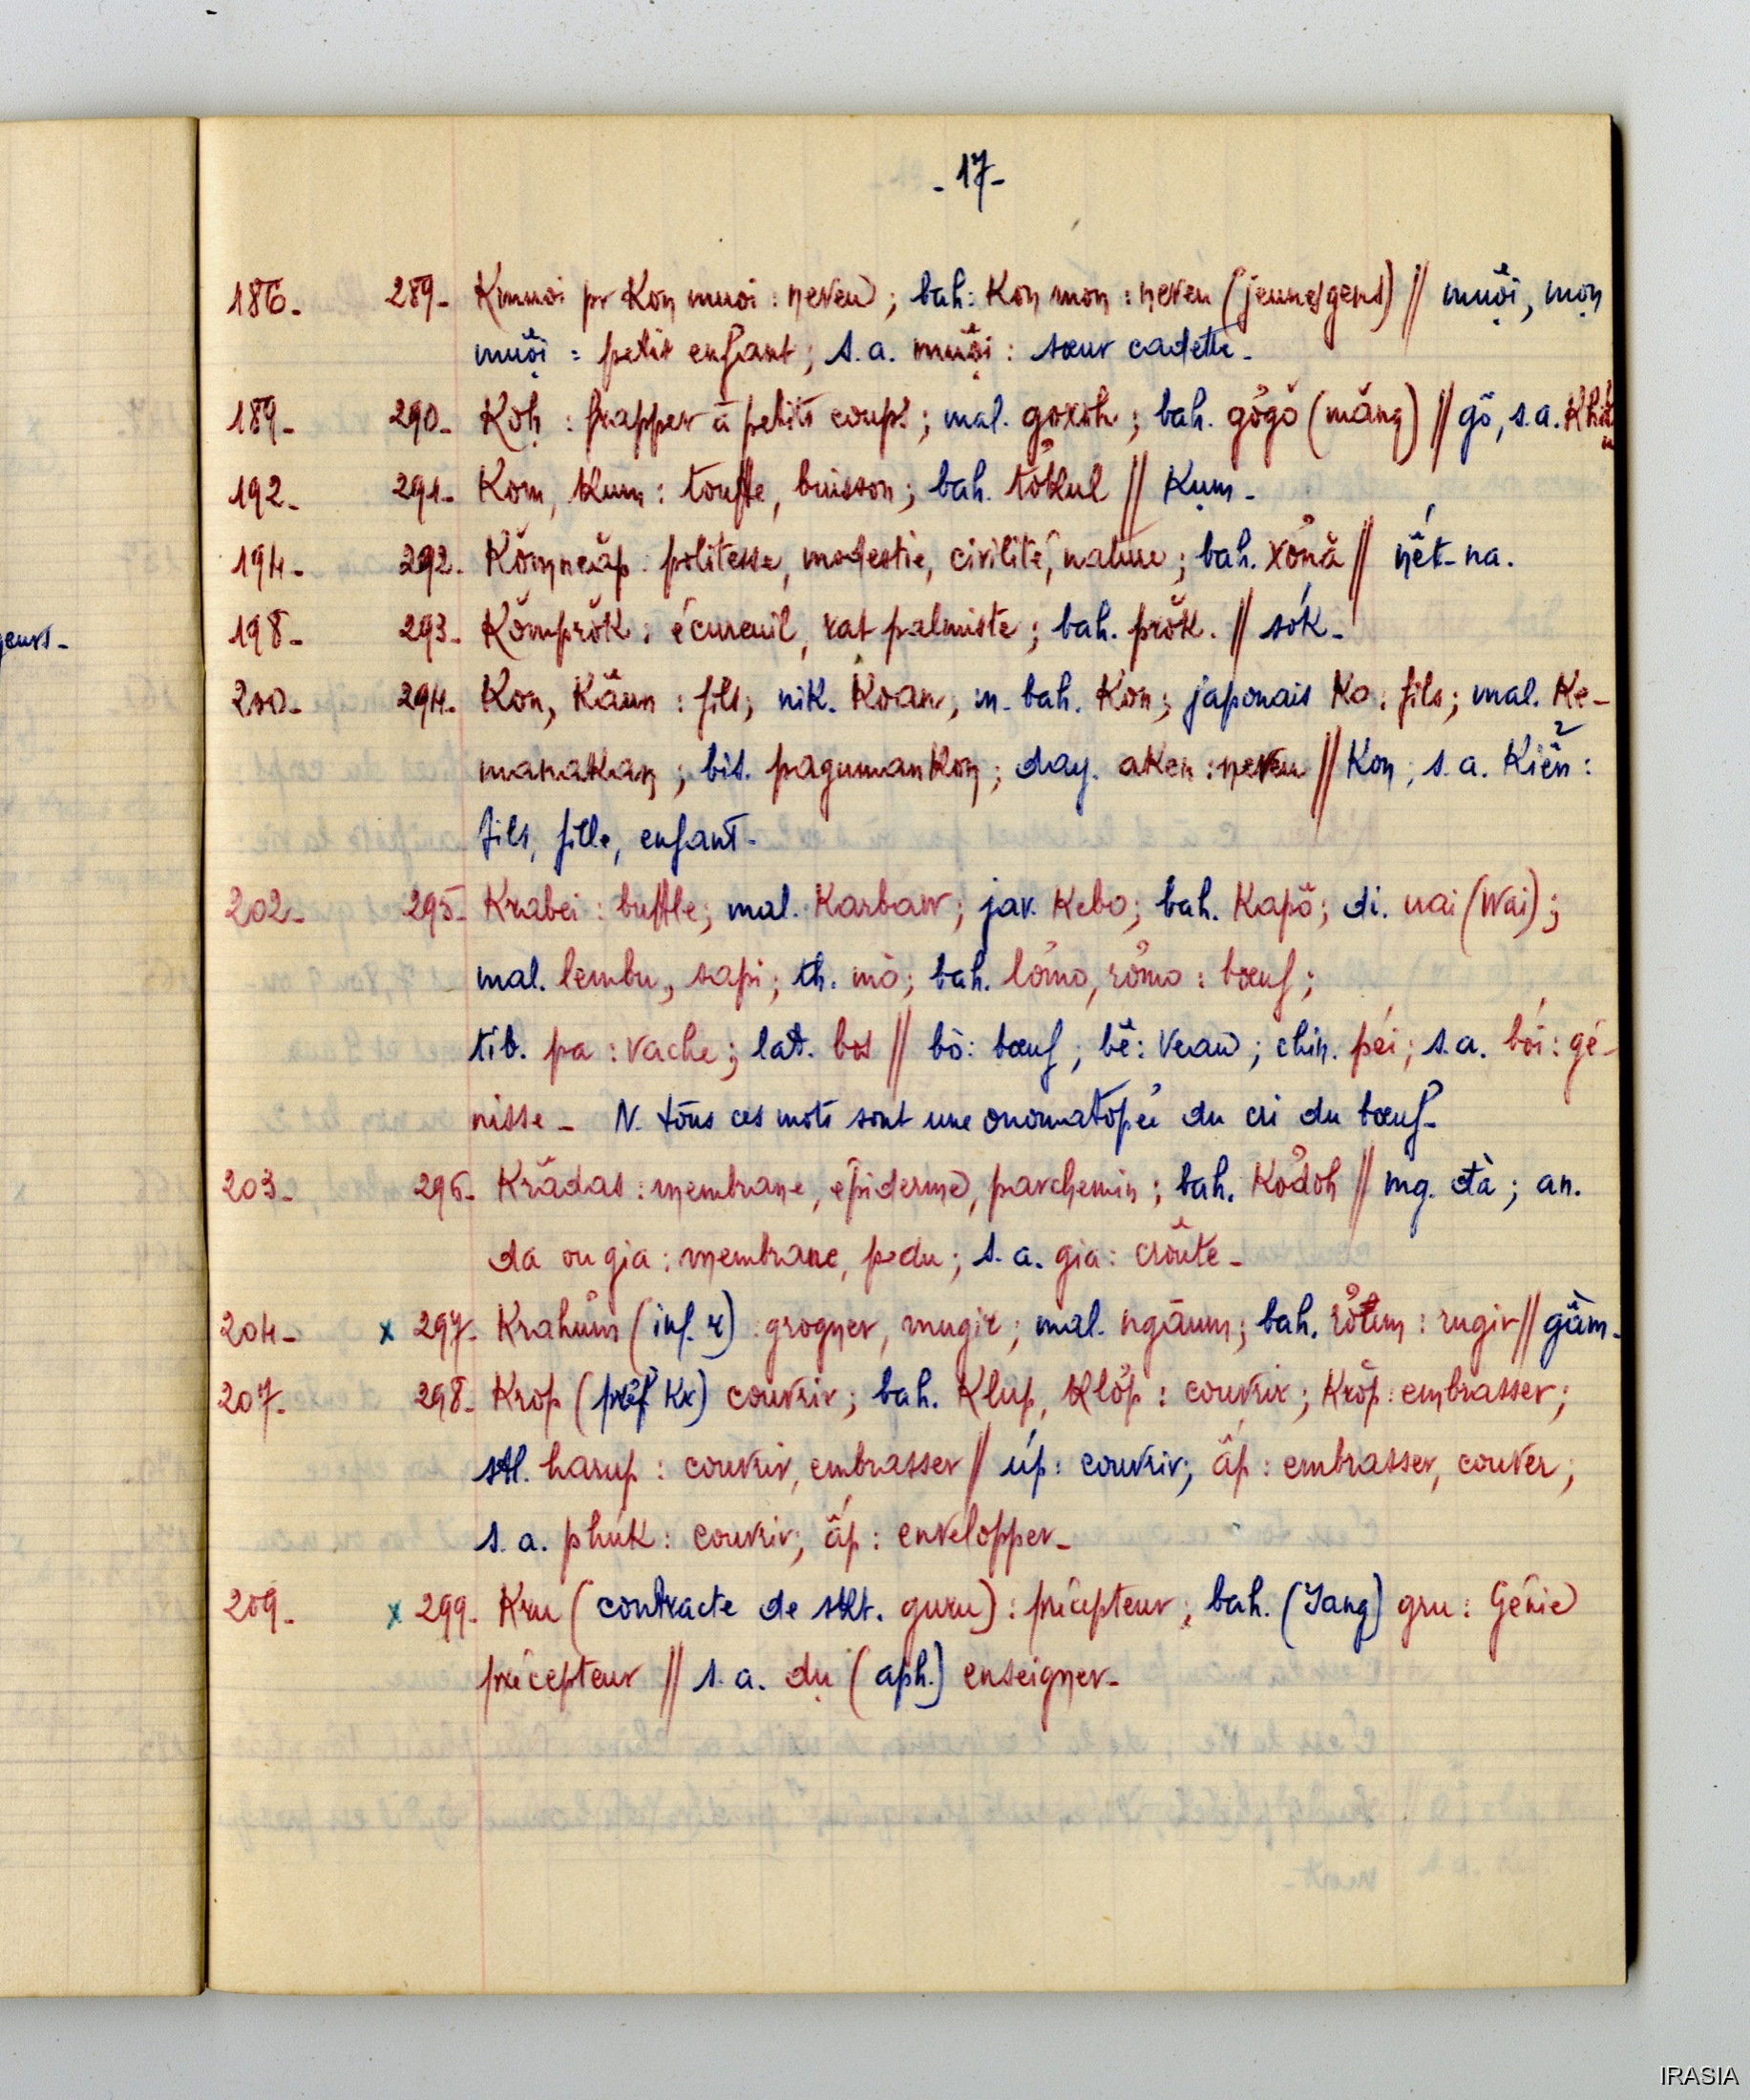 - 17 -
geurs -
186. 289- Kmuoi pr Kon muoi : neveu ; bah: Kon mon : neveu (jeunes gens) // muội, mọn
muội = petit enfant ; s.a. muội : sœur cadette -
189- 290- Kọh : frapper à petits coups ; mal. goxoh ; bah. gơ̆gơ̆ (măng) // gõ, s.a.
192- 291- Kom, Kum : touffe, buisson ; bah. tơ̆kul // Kụm -
194- 292- Kŏmneăp : politesse, modestie, civilité, nature ; bah. xơnă // nết-na.
198- 293- Kŏmprŏk : écureuil, rat palmiste ; bah. prŏk. // sók -
200- 294- Kon, Kâun : fils ; nik. Koan ; m. bah. Kon ; japonais Ko : fils ; mal. Ke-
manakan ; bis. pagumankon ; day. aken : neveu // Kon ; s.a. Kiên² :
fils, fille, enfant -
202- 295- Krabei : buffle ; mal. Karbaw ; jav. Kebo ; bah. Kapô ; di. uai (Wai) ;
mal. lembu, sapi ; th. mò ; bah. lơmo, rơmo : bœuf ;
tib. pa : vache ; lat. bos // bò : bœuf ; bê : Veau ; chin. péi ; s.a. bói : gé-
nisse - N. tous ces mots sont une onomatopée du cri du bœuf -
203- 296- Krădas : membrane, épiderme, parchemin ; bah. Kơdoh // mg. đà ; an.
da ou gia : membrane, peau ; s.a. gia : croûte -
204- x 297- Krahŭm (inf. r) : grogner, mugir ; mal. ngāum ; bah. : rugir // gầm -
207- 298- Krop (préf Kr) couvrir ; bah. Klup, Klŏp : couvrir ; Krŏp : embrasser ;
stl. harup : couvrir, embrasser // úp : couvrir ; ấp : embrasser, couver ;
s.a. phúk : couvrir ; ấp : envelopper -
209- x 299- Kru (contracte de skt. guru) : précepteur ; bah. (Yang) gru : Génie
précepteur // s.a. dụ (aph.) enseigner -
IRASIA